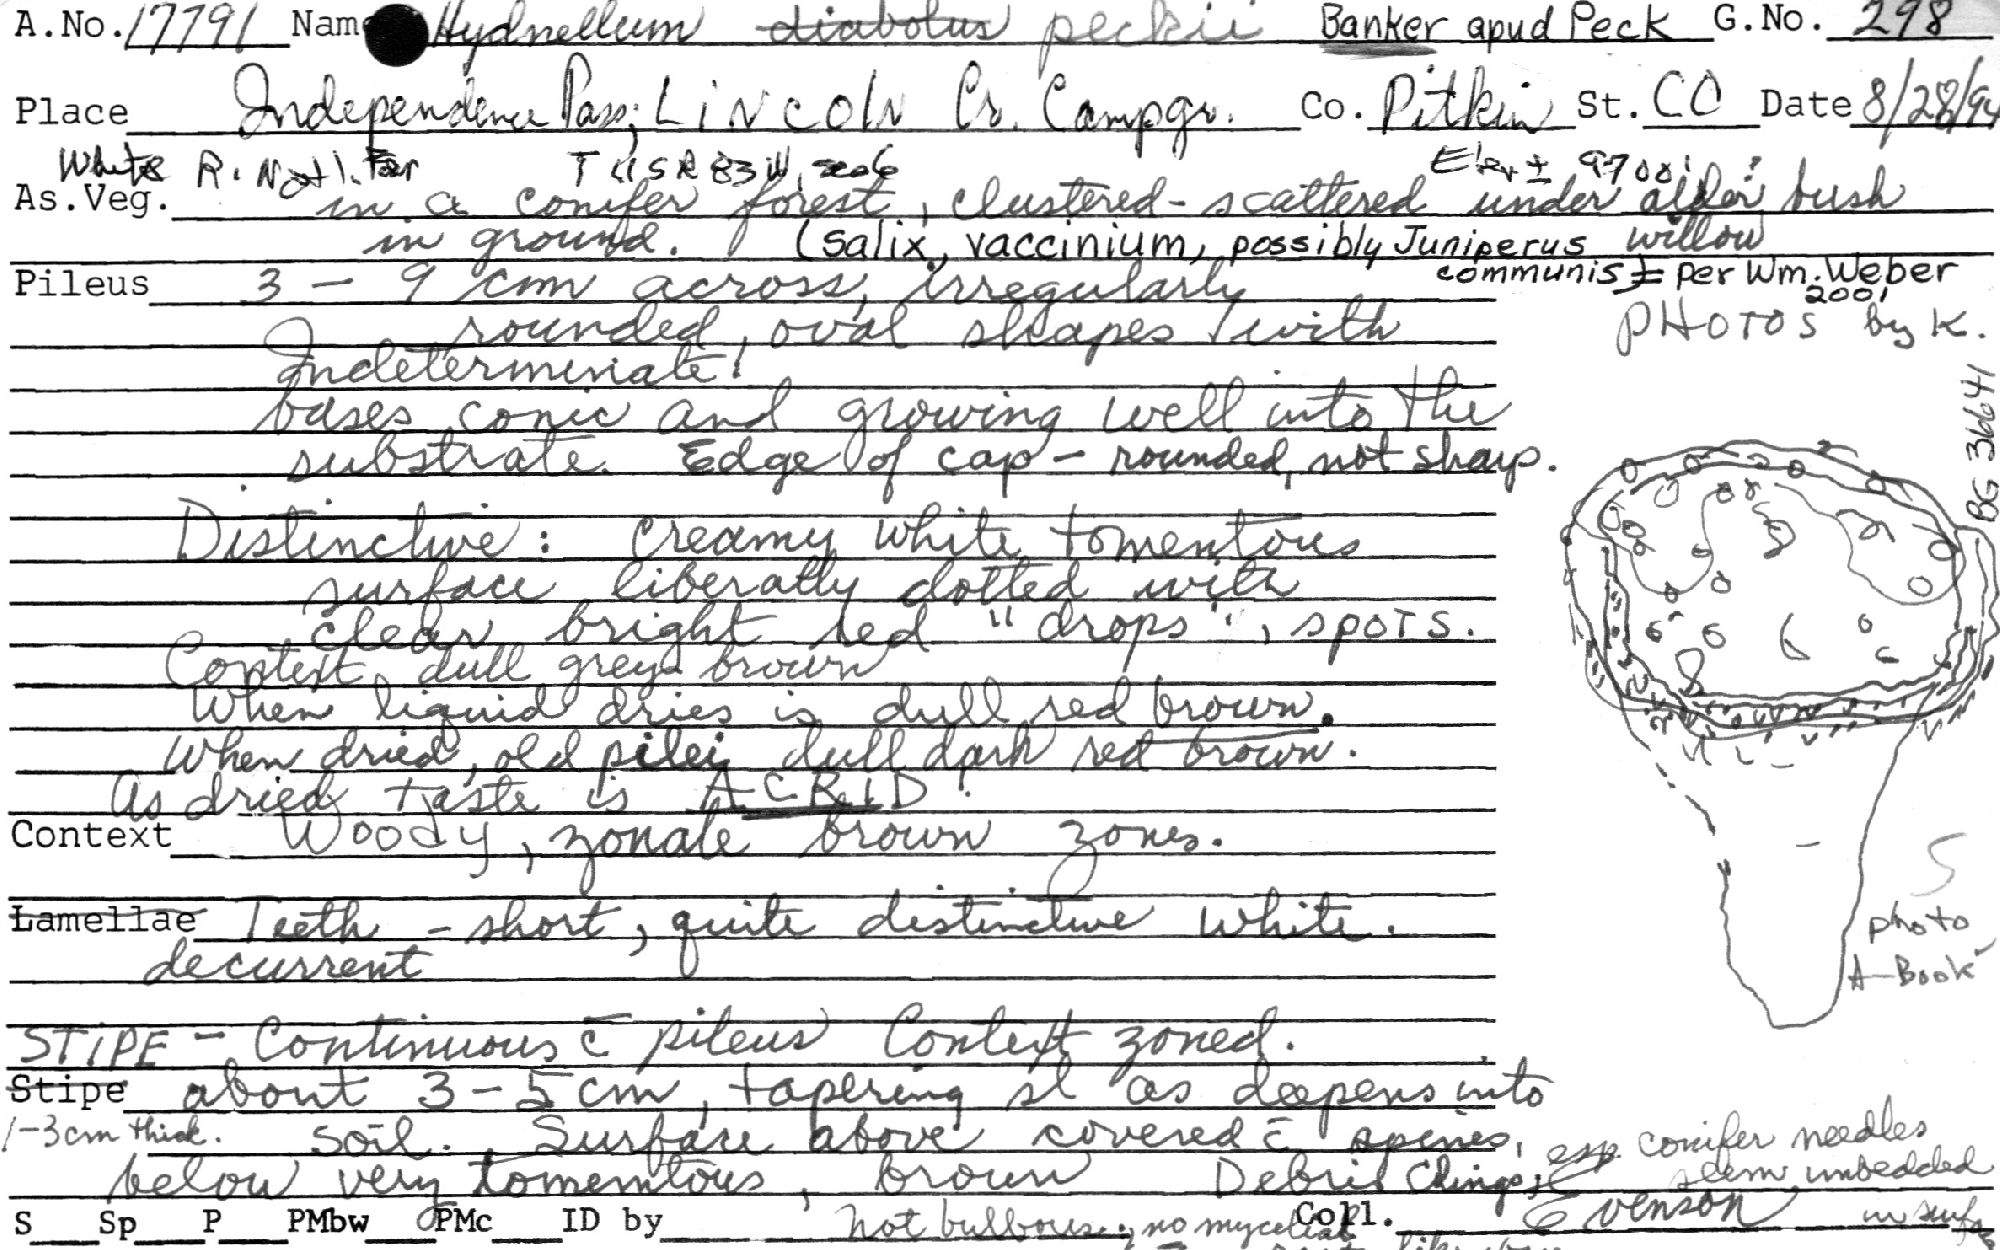 A.No. 17791 Name Hydnellum diabolus peckii Banker apud Peck G.No. 298
Place Independence Pass; Lincoln Cr. Campgr. Co. Pitkin St. CO Date 8/28/94
White R. Natl. For T11S R83W, sec6 Elev ± 9700' ?
As.Veg. in a conifer forest, clustered-scattered under alder bush
in ground. (Salix, vaccinium, possibly Juniperus willow
communis ± per Wm. Weber
2001
Pileus 3 – 9 cm across, irregularly
PHOTOS by K.
rounded, oval shapes with
Indeterminate!
bases conic and growing well into the
substrate. Edge of cap – rounded, not sharp.
BG 36641
Distinctive: creamy white tomentous
surface liberally dotted with
clear bright red "drops", spots.
Context dull grey brown
When liquid dries is dull red brown.
When dried, old pilei dull dark red brown.
As dried taste is ACRID!
Context Woody, zonate brown zones.
Lamellae Teeth – short, quite distinctive white.
decurrent
5
photo
A-Book
STIPE – Continuous c̄ pileus Context zoned.
Stipe about 3–5 cm, tapering sl as deepens into
1–3cm thick. soil. Surface above covered c̄ spines,
esp. conifer needles
below very tomentous, brown Debris clings;
stem, imbedded
in surface
S Sp P PMbw PMc ID by not bulbous; no mycelial Coll. Evenson
like